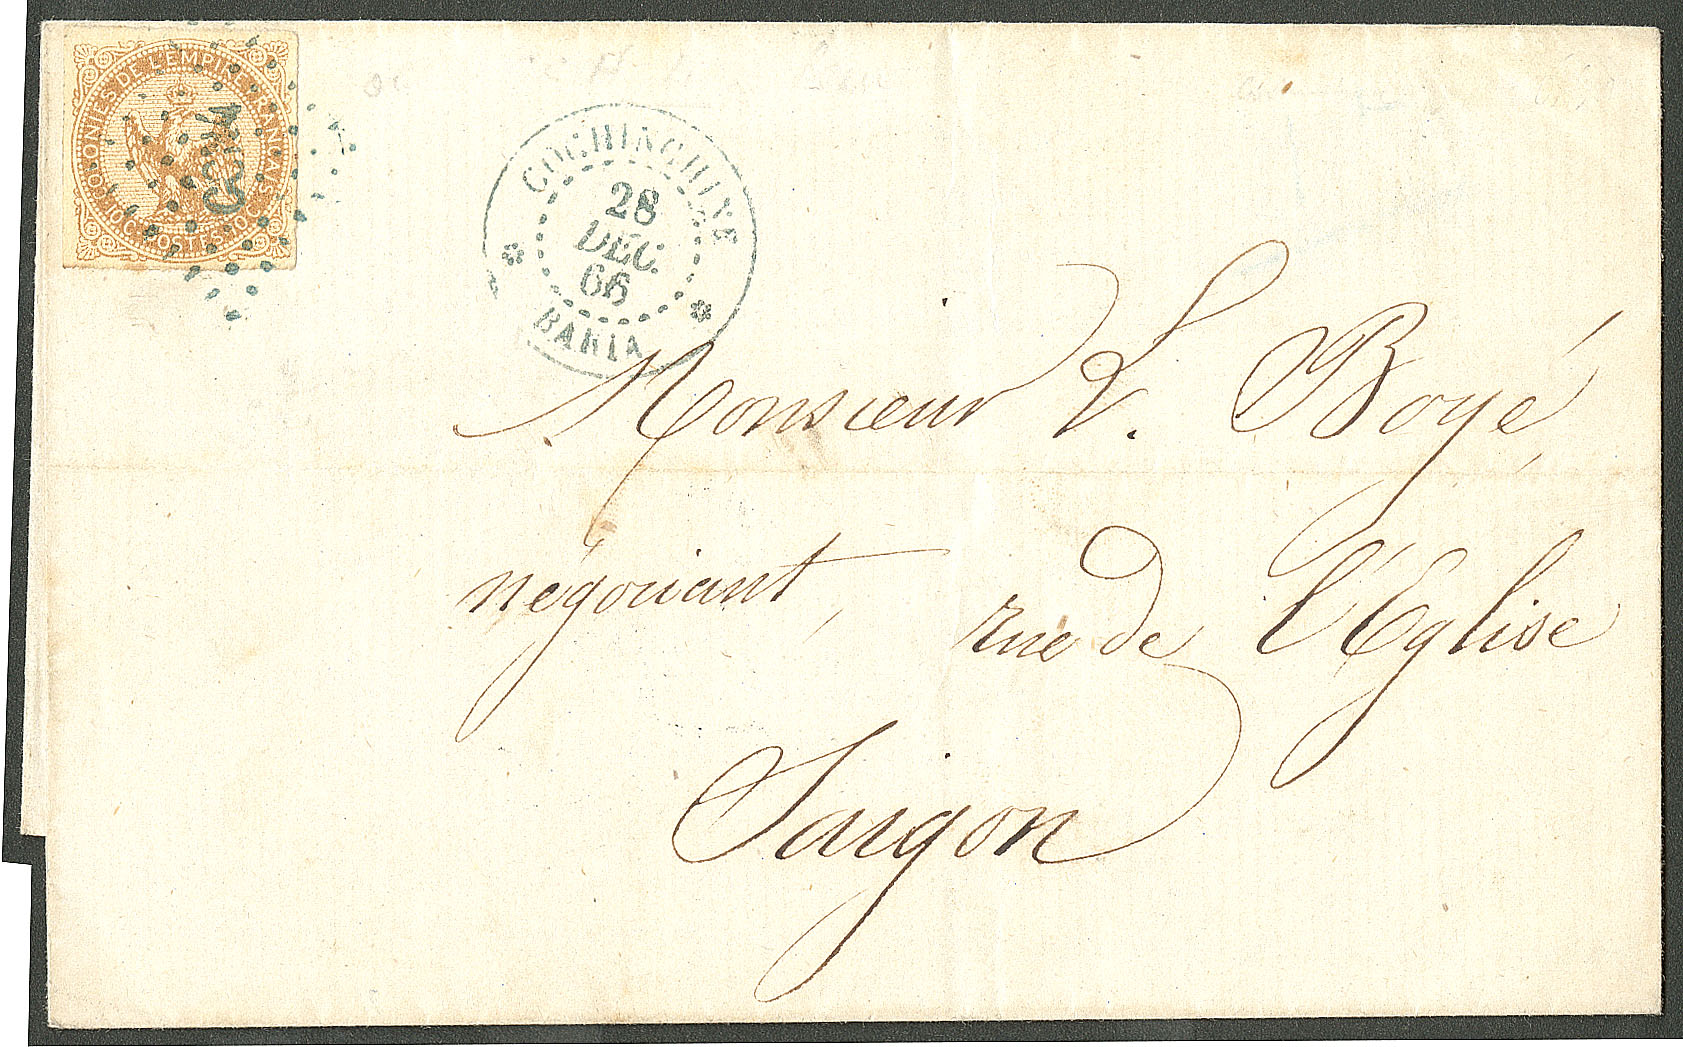 COLONIES DE L'EMPIRE FRANÇAIS
10 C. POSTES 10 C.
CCH
COCHINCHINE
28
DÉC.
66
BARIA
Monsieur L. Boyé,
négociant, rue de l'Eglise
Saigon